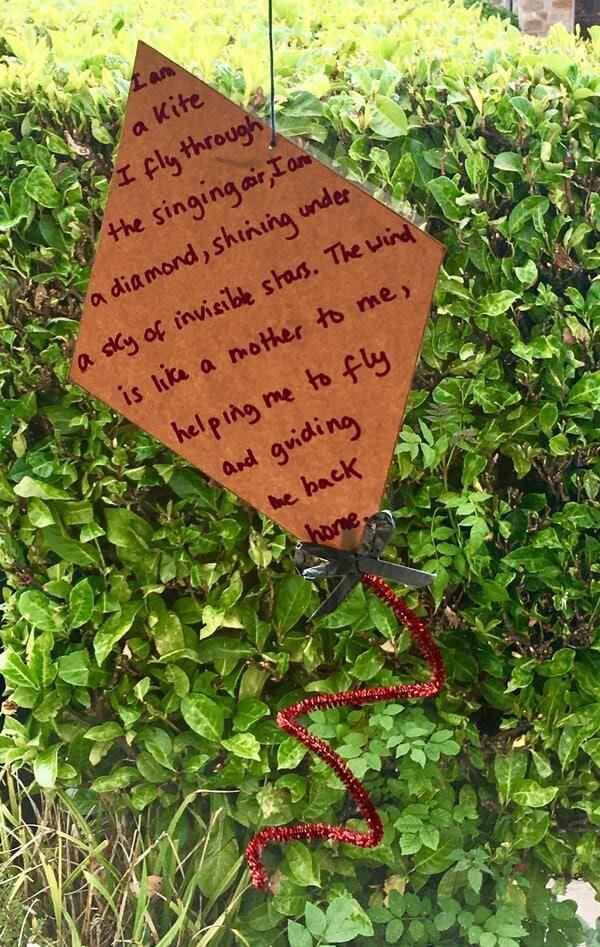 I am
a Kite
I fly through
the singing air, I am
a diamond, shining under
a sky of invisible stars. The wind
is like a mother to me,
helping me to fly
and guiding
me back
home.